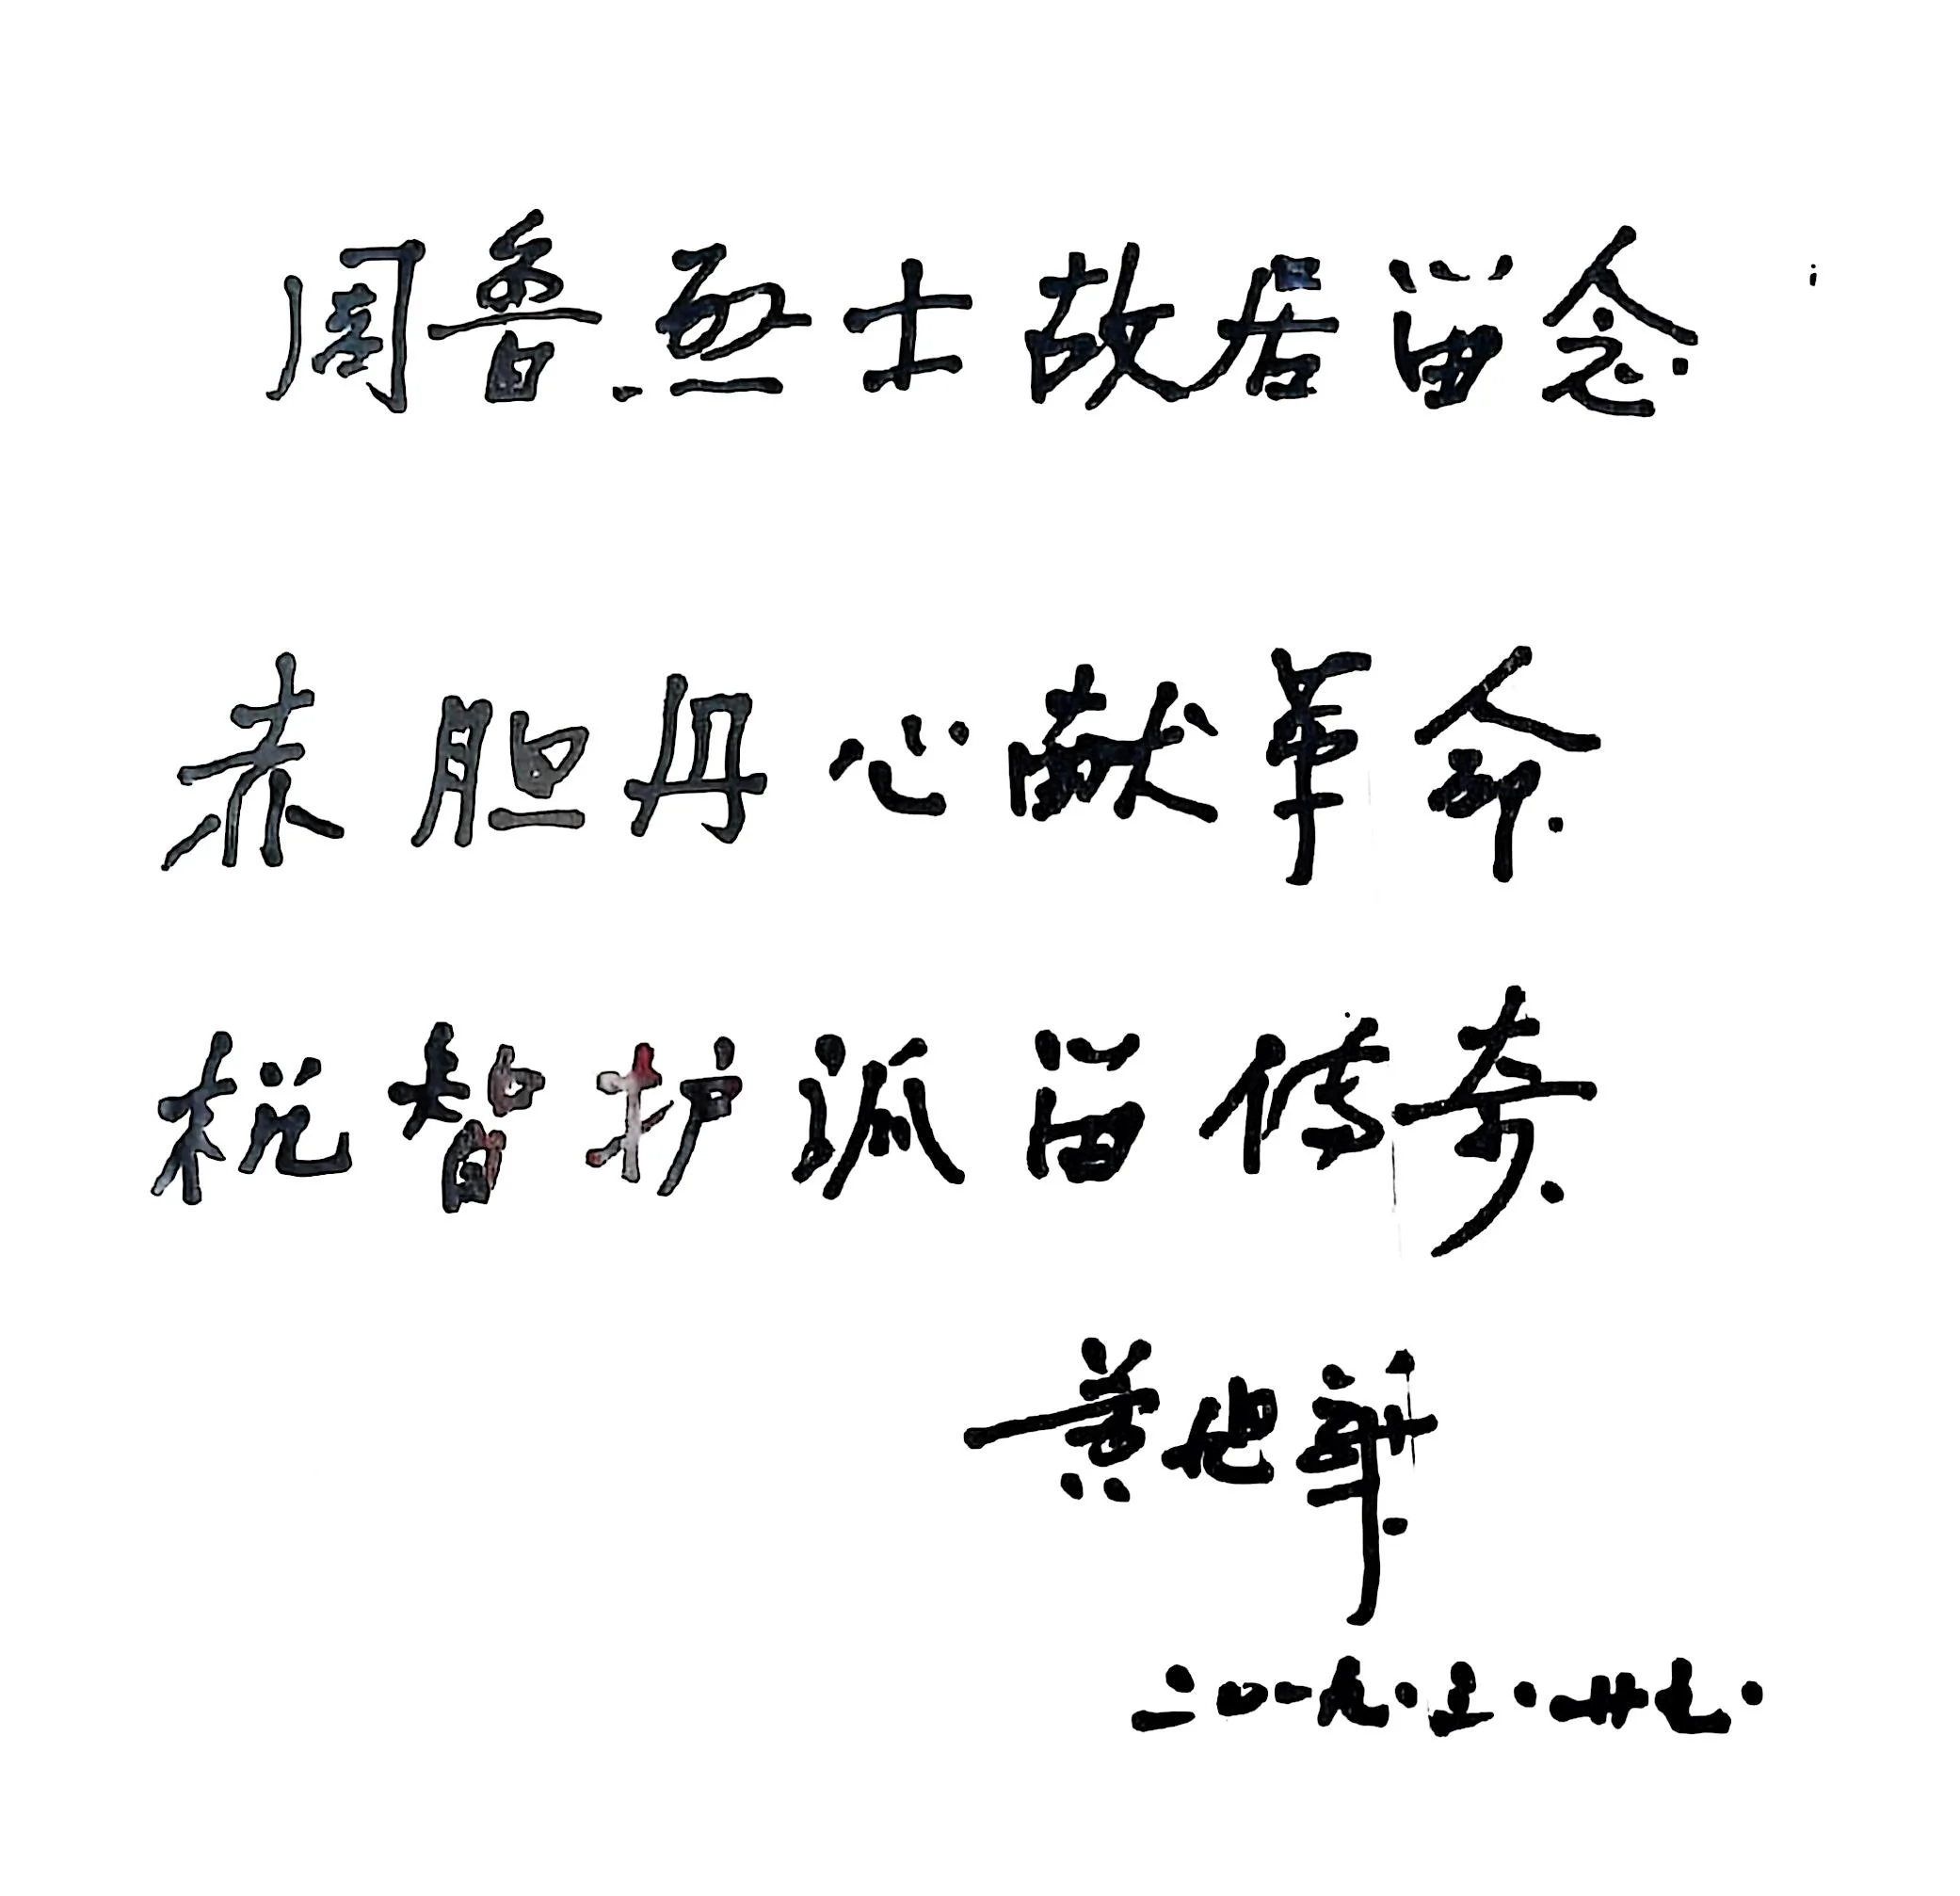 周鲁烈士故居留念.
赤胆丹心献革命.
机智护孤留传奇.
黄
二〇一九·五·廿七·